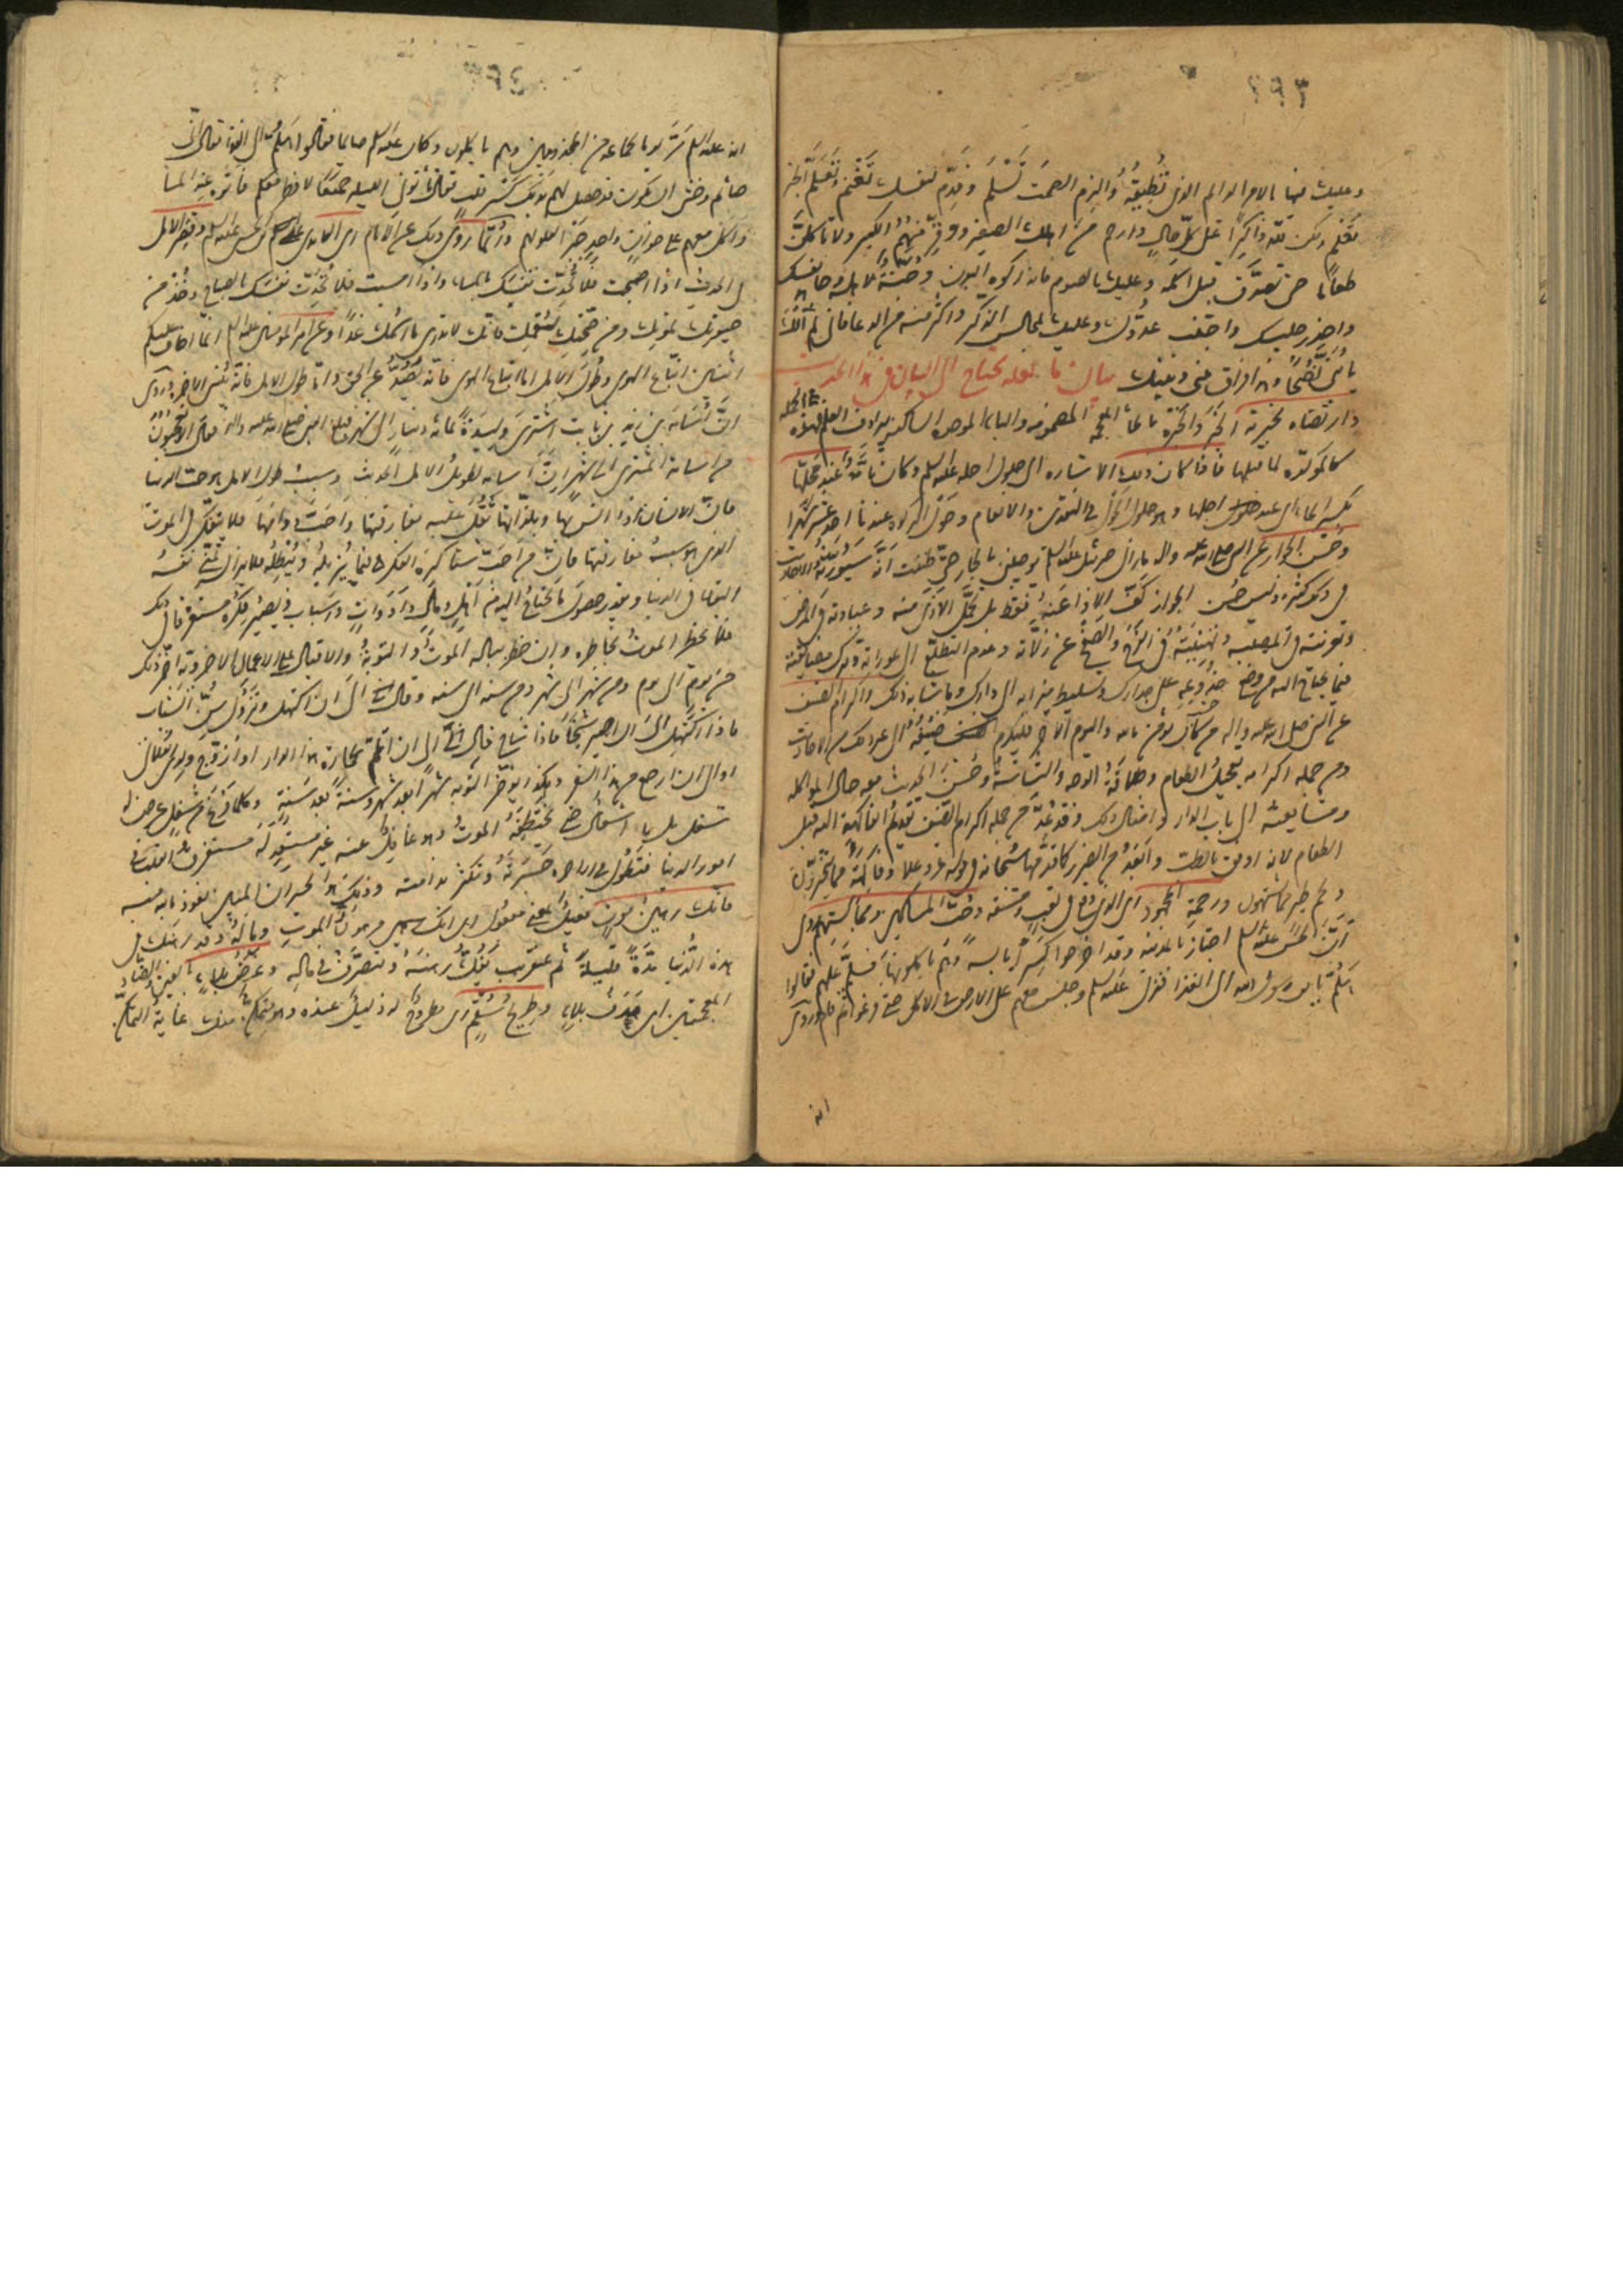 ٢٩٣
وعليك منها بالامر الوالم الذى تطيقه والزم الصمت تسلم وقدم لنفسك تغنم وتعلم الخير
تعلم وكن لله ذاكرا على كل حال وارحم من اهلك الصغير ووقر منهم الكبير ولا تاكلن
طعاما حتى تصدق قبل اكله وعليك بالصوم فانه زكوة البدن وجنة لاهله وجاهد نفسك
واحذر جليسك واجتنب عدوك وعليك بمجالس الذكر واكثر من الدعا فانى لم آلك
يا بنى نصحا وهذا فراق بينى وبينك بيان ما لعله يحتاج الى البيان فى هذا الحديث
وارتضاه لخيرته الخبر والخبرة بالخاء المعجمة المضمومة والباء الموحدة الساكنة يرادف العلم
بكسر الحاء اى عند حلول اجلها وهو حلول الحول فى النقدين والانعام وحول الزكاة عندنا احد عشر شهرا
وحسن الجوار عن النبى صلى الله عليه واله ما زال جبرئيل عليه السلم يوصينى بالجار حتى ظننت انه سيورثه والاحاديث
فى ذلك كثيرة وليس حسن الجوار كف الاذا عنه فقط بل تحمل الاذى منه وعيادته فى المرض
وتعزيته فى المصيبة وتهنيته فى الفرح والصفح عن زلاته وعدم التطلع الى عوراته وترك مضايقته
فيما يحتاج اليه من وضع جذوعه على جدارك وتسليط ميزابه الى دارك وما شابه ذلك واكرام الضيف
عن النبى صلى الله عليه واله من كان يؤمن بالله واليوم الآخر فليكرم ضيفه الى غير ذلك من الاحاديث
ومن جملة اكرامه تعجيل الطعام وطلاقة الوجه والبشاشة وحسن الحديث معه حال المواكلة
ومشايعته الى باب الدار وامثال ذلك وقد عد من جملة اكرام الضيف تقديم الفاكهة اليه قبل
الطعام لانه اوفق بالطب وابعد من الضرر كما قدمها سبحانه فى قوله عز وعلا وفاكهة مما يتخيرون
ولحم طير مما يشتهون ورحمة المجهود اى الذى وقع فى تعب ومشقة وحب المساكين ومجالستهم روى
ان الحسن عليه السلم اجتاز بالمدينة وقد اخرجوا كسرا يابسة وهم ياكلونها فسلم عليهم فقالوا
هلم يا بن رسول الله الى الغذا فنزل عليه السلم وجلس معهم على الارض فى الاكل حتى فرغوا
انه
انه عليه السلم مر يوما بجماعة من المجذومين وهم ياكلون وكان عليه السلم صايما فقالوا هلم الى الغدا فقال انى
صائم وخشى ان يكون قد حصل لهم بذلك كسر قلب فقال تأتونى الليلة جميعا لافطر معكم فاتوه عند المسا
واكل معهم على خوان واحد جبرا لقلوبهم وربما روى ذلك عن الامام زين العابدين عليه السلم وقصر الامل
فى الحديث اذا اصبحت فلا تحدث نفسك بالمساء واذا امسيت فلا تحدث نفسك بالصباح وخذ من
حيوتك لموتك ومن صحتك لسقمك فانك لا تدرى ما اسمك غدا وعن امير المؤمنين عليه السلم انما اخاف عليكم
اثنتين اتباع الهوى وطول الامل اما اتباع الهوى فانه يصد عن الحق واما طول الامل فانه ينسى الآخرة وروى
ان اسامة بن زيد بن ثابت اشترى وليدة بمائة دينار الى شهر فبلغ النبى صلى الله عليه واله فقال الا تعجبون
من اسامة المشترى الى شهر ان اسامة لطويل الامل الحديث وسبب طول الامل هو حب الدنيا
فان الانسان اذا انس بها وبلذاتها ثقل عليه مفارقتها واحب دوامها فلا يتفكر فى الموت
الذى هو سبب مفارقتها فان من احب شيئا كره الفكر فيما يزيله ويبطله فلا يزال تمنى نفسه
البقاء فى الدنيا ويقدر حصول ما يحتاج اليه من اهل ومال وادوات واسباب ويصير فكره مستغرقا فى ذلك
فلا يخطر الموت بخاطره وان خطر بباله الموت والتوبة والاقبال على الاعمال الاخروية اخر ذلك
من يوم الى يوم ومن شهر الى شهر ومن سنة الى سنة وقال الى ان اكتهل ويزول سن الشباب
فاذا اكتهل قال الى ان اصير شيخا فاذا شاخ قال الى ان اتم عمارة هذه الدار او ازوج ولدى فلان
او الى ان ارجع من هذا السفر وهكذا يؤخر التوبة شهرا بعد شهر وسنة بعد سنة وكلما فرغ من شغل عرض له
شغل بل اشغال حتى يختطفه الموت وهو غافل عنه غير مستعد له مستغرق القلب فى
امور الدنيا فتطول فى الاخرة حسرته وتكثر ندامته وذلك هو الخسران المبين نعوذ بالله منه
فانك رهين موت فعيل بمعنى مفعول اى انك مرهون الموت وماله وقد رهنك فى
هذه الدنيا مدة قليلة ثم عنقريب يفك رهنه ويتصرف فى ماله وعرض بلاء بالغين والضاد
المعجمتين اى هدف بلاء وطريح سقم اى مطروح له ذليل عنده وهو متمكن منك غاية التمكن